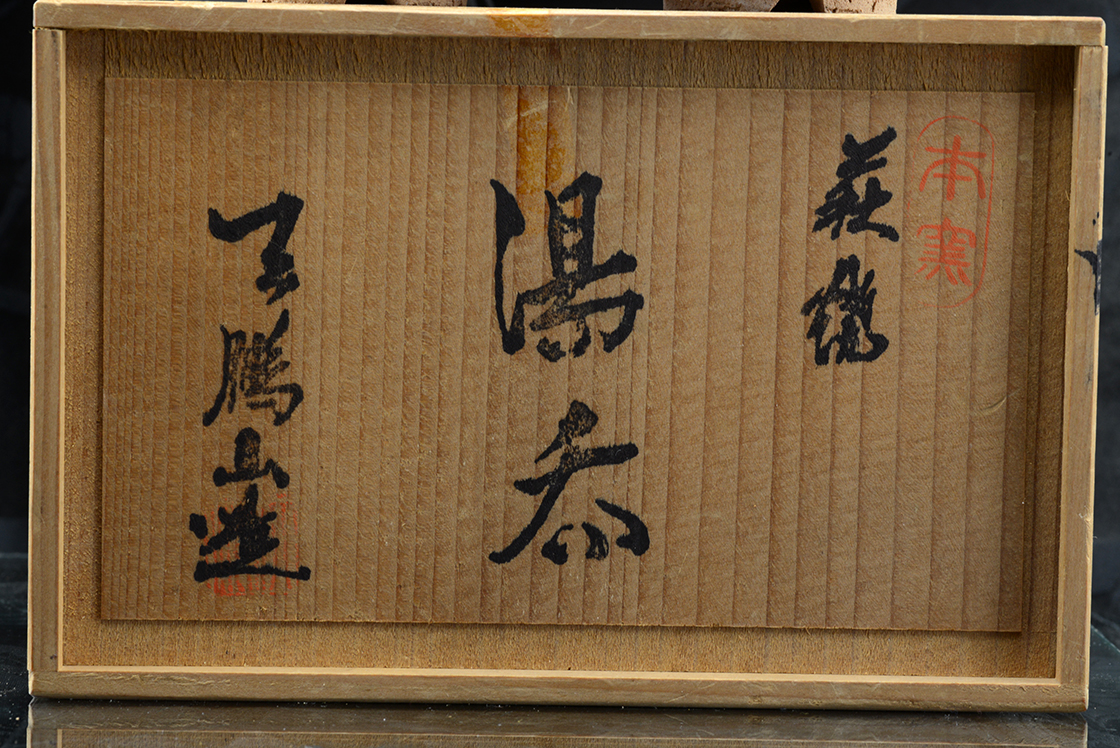 本窯
萩焼
湯呑
天鵬山造